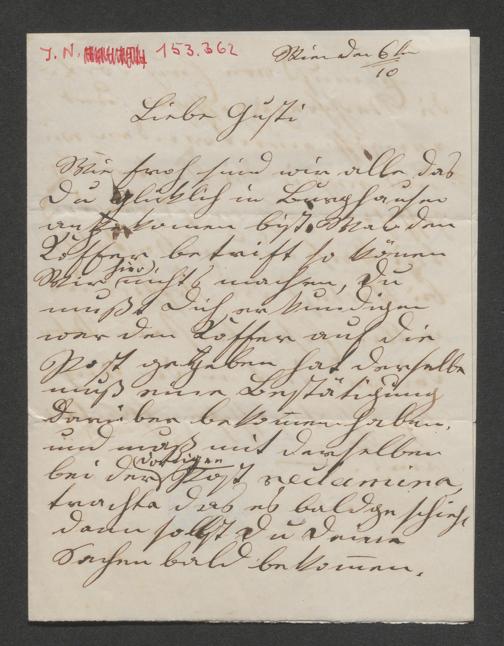 J. N. 153.362
Wien den 6ten
10
Liebe Gusti
Wie froh sind wir alle das
Du glüklich in Burghausen
angekomen bist. Was den
Koffer betrift so könen
Wir hier nichts machen, Du
mußt Dich erkundigen
wer den Koffer auf die
Post gegeben hat derselbe
muß eine Bestätigung
darüber bekommen haben,
und muß mit derselben
bei der dortigen Post reclamiren,
trachte das es bald geschieht
dann sollst Du Deine
Sachen bald bekommen.